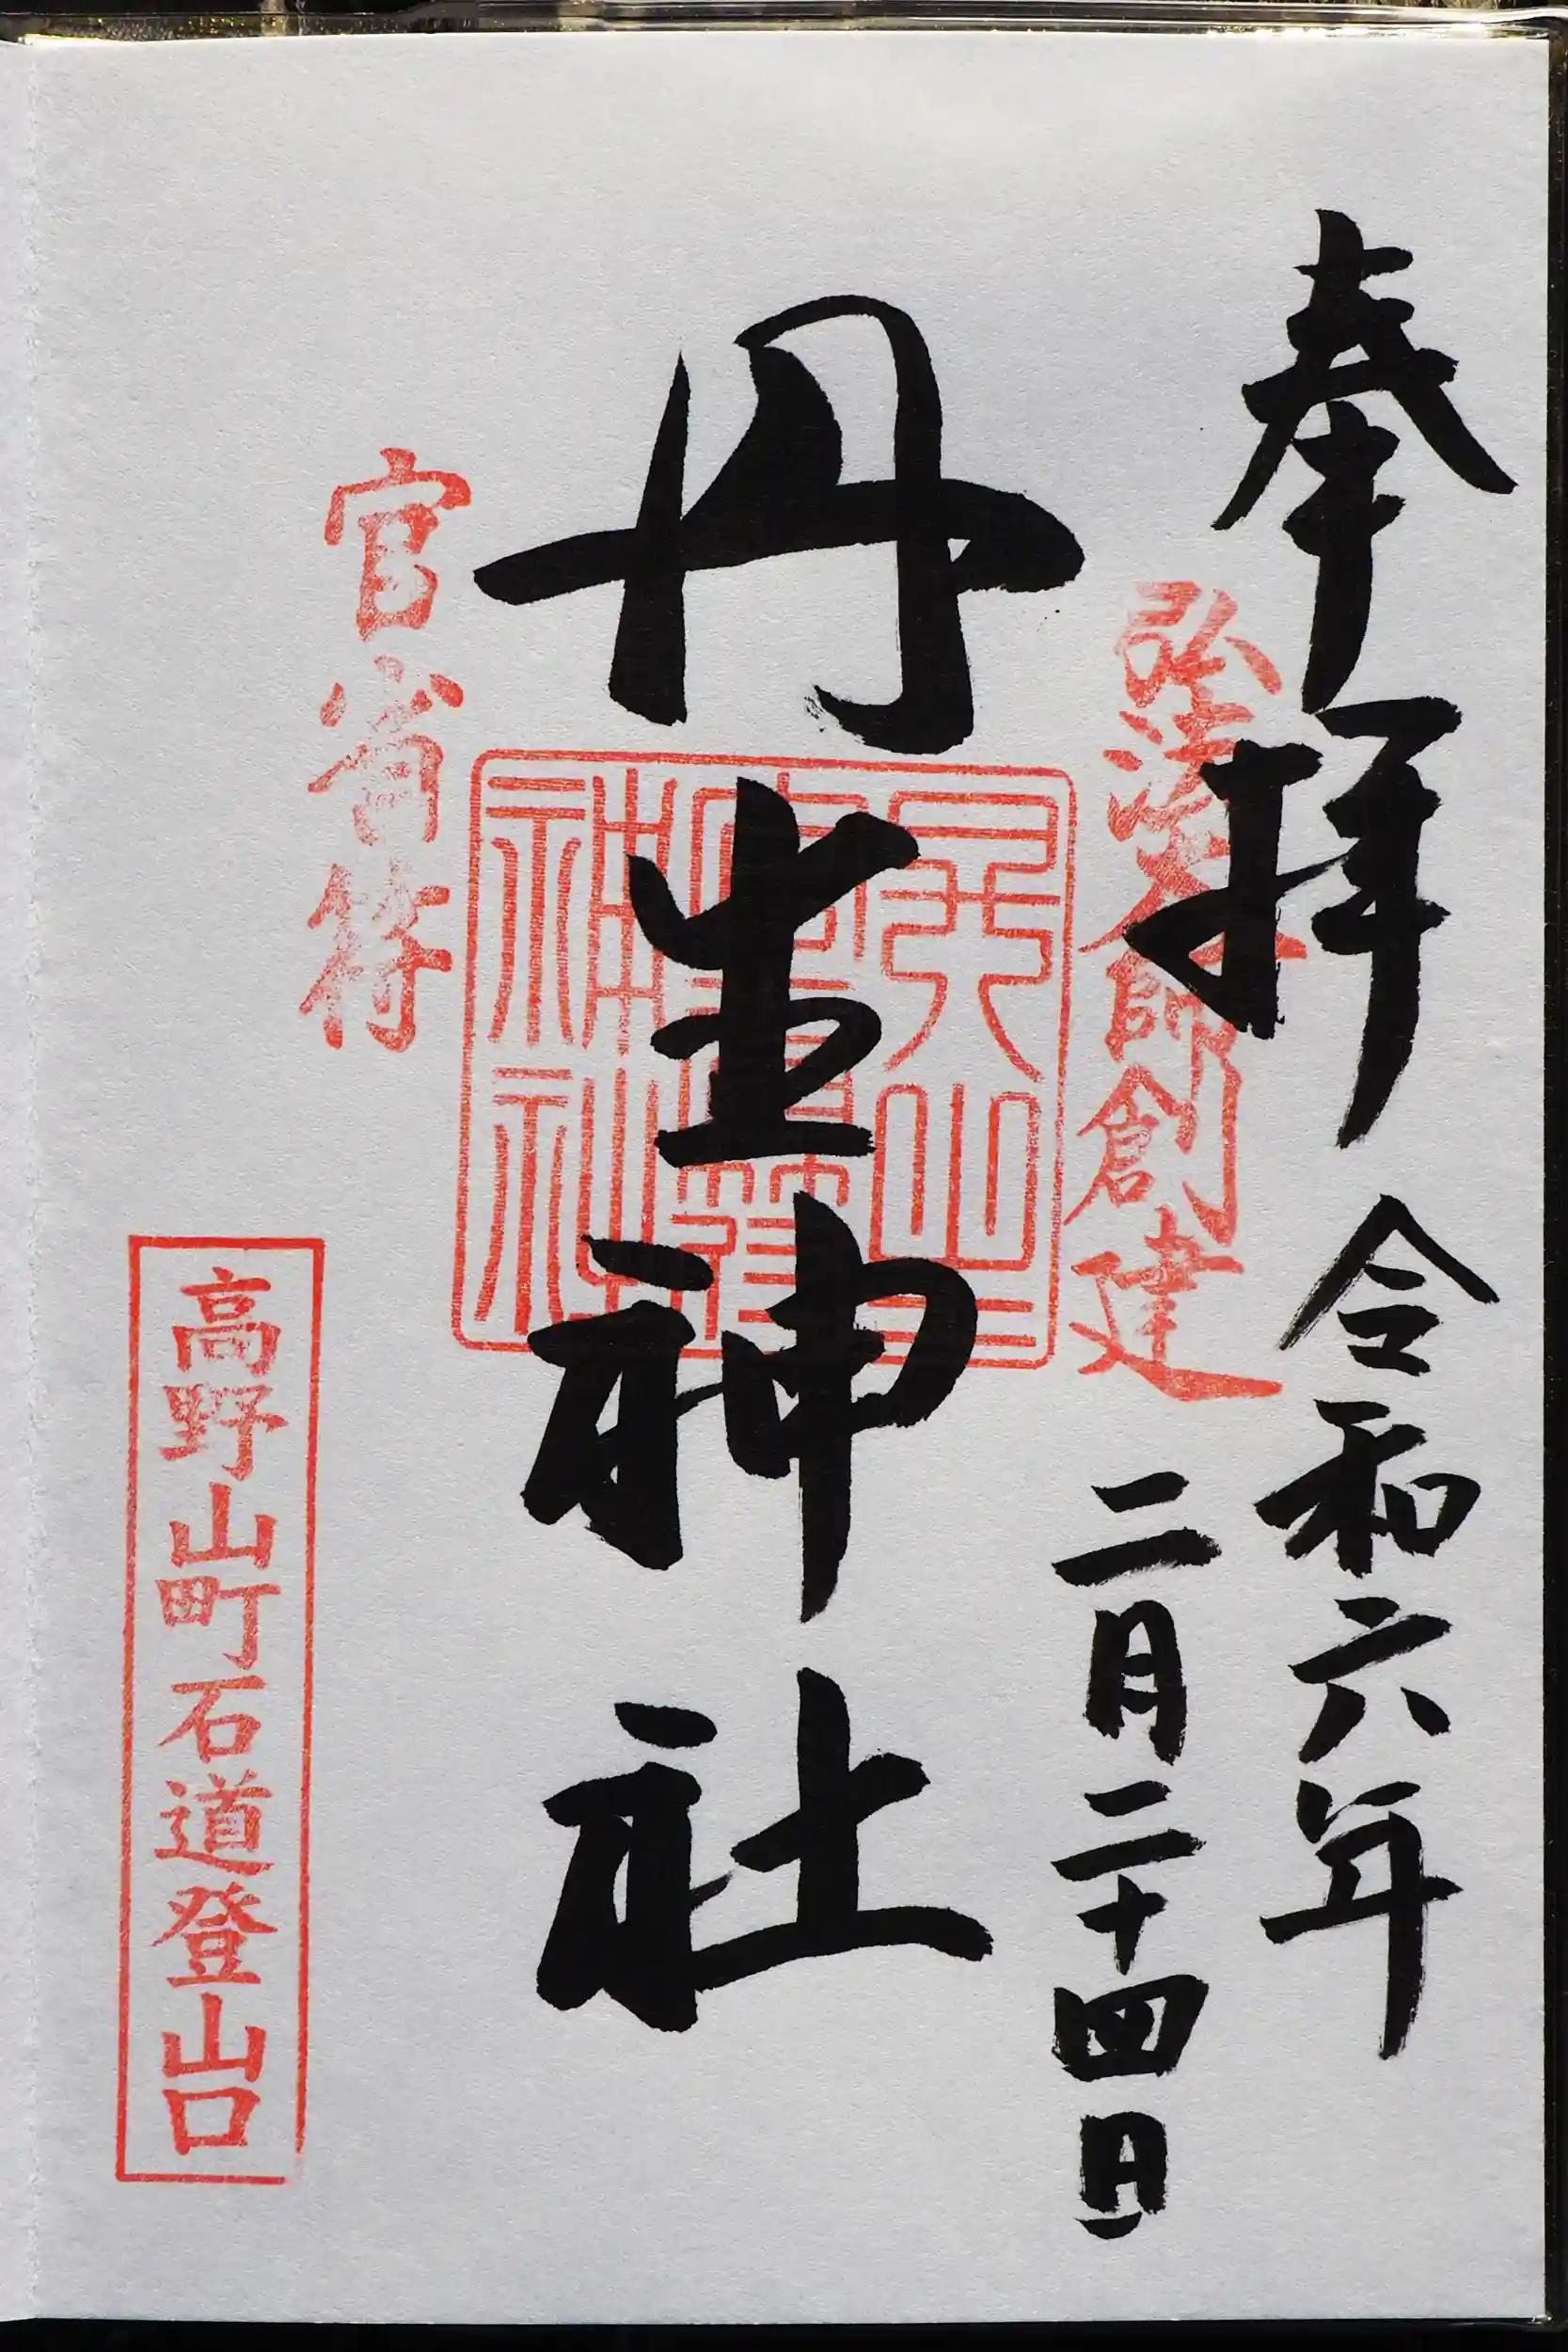 奉拝 令和六年
二月二十四日
弘法大師創建
丹生神社
官省符
高野山町石道登山口